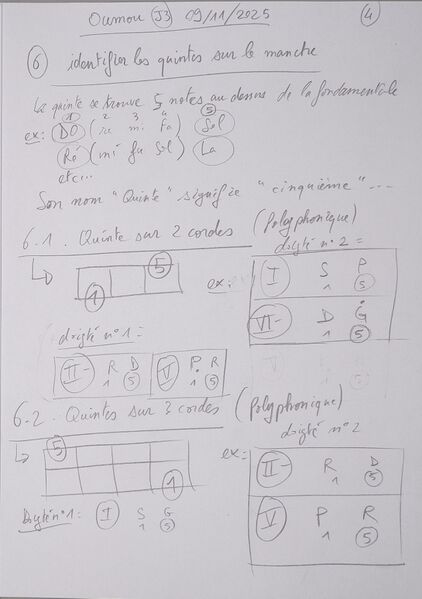 Oumou J3 09/11/2025 4
6 identifier les quintes sur le manche
La quinte se trouve 5 notes au dessus de la fondamentale
1 2 3 4 5
ex: DO (ré mi Fa) Sol
Ré (mi fa Sol) La
etc...
Son nom "Quinte" signifie "cinquième"...
6.1. Quinte sur 2 cordes (Polyphonique)
doigté n°2 =
5
1
ex:
I S P
1 5
VI- D G
1 5
doigté n°1 =
II- R D
1 5
V P R
1 5
6.2. Quintes sur 3 cordes (Polyphonique)
doigté n°2
5
1
ex=
II- R D
1 5
V P R
1 5
Doigté n°1: I S G
1 5